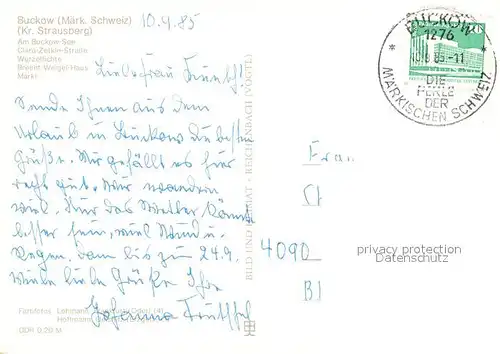 Buckow (Märk. Schweiz)
(Kr. Strausberg)
Am Buckow-See
Clara-Zetkin-Straße
Wurzelfichte
Brecht-Weigel-Haus
Markt
10.9.85
Liebe Frau
Sende Ihnen aus dem
Urlaub in Buckow die besten
Grüße. Mir gefällt es hier
recht gut. Wir wandern
viel. Nur das Wetter könnte
besser sein, viel Wind u.
Regen. bis zum 24.9.
Viele liebe Grüße Ihre
Johanna
Farbfotos
Hofmann
DDR 0,20 M
BILD UND HEIMAT REICHENBACH (VOGTL)
BUCKOW
1276
-11
DIE
PERLE
DER
MÄRKISCHEN SCHWEIZ
Frau
4090
privacy protection
Datenschutz